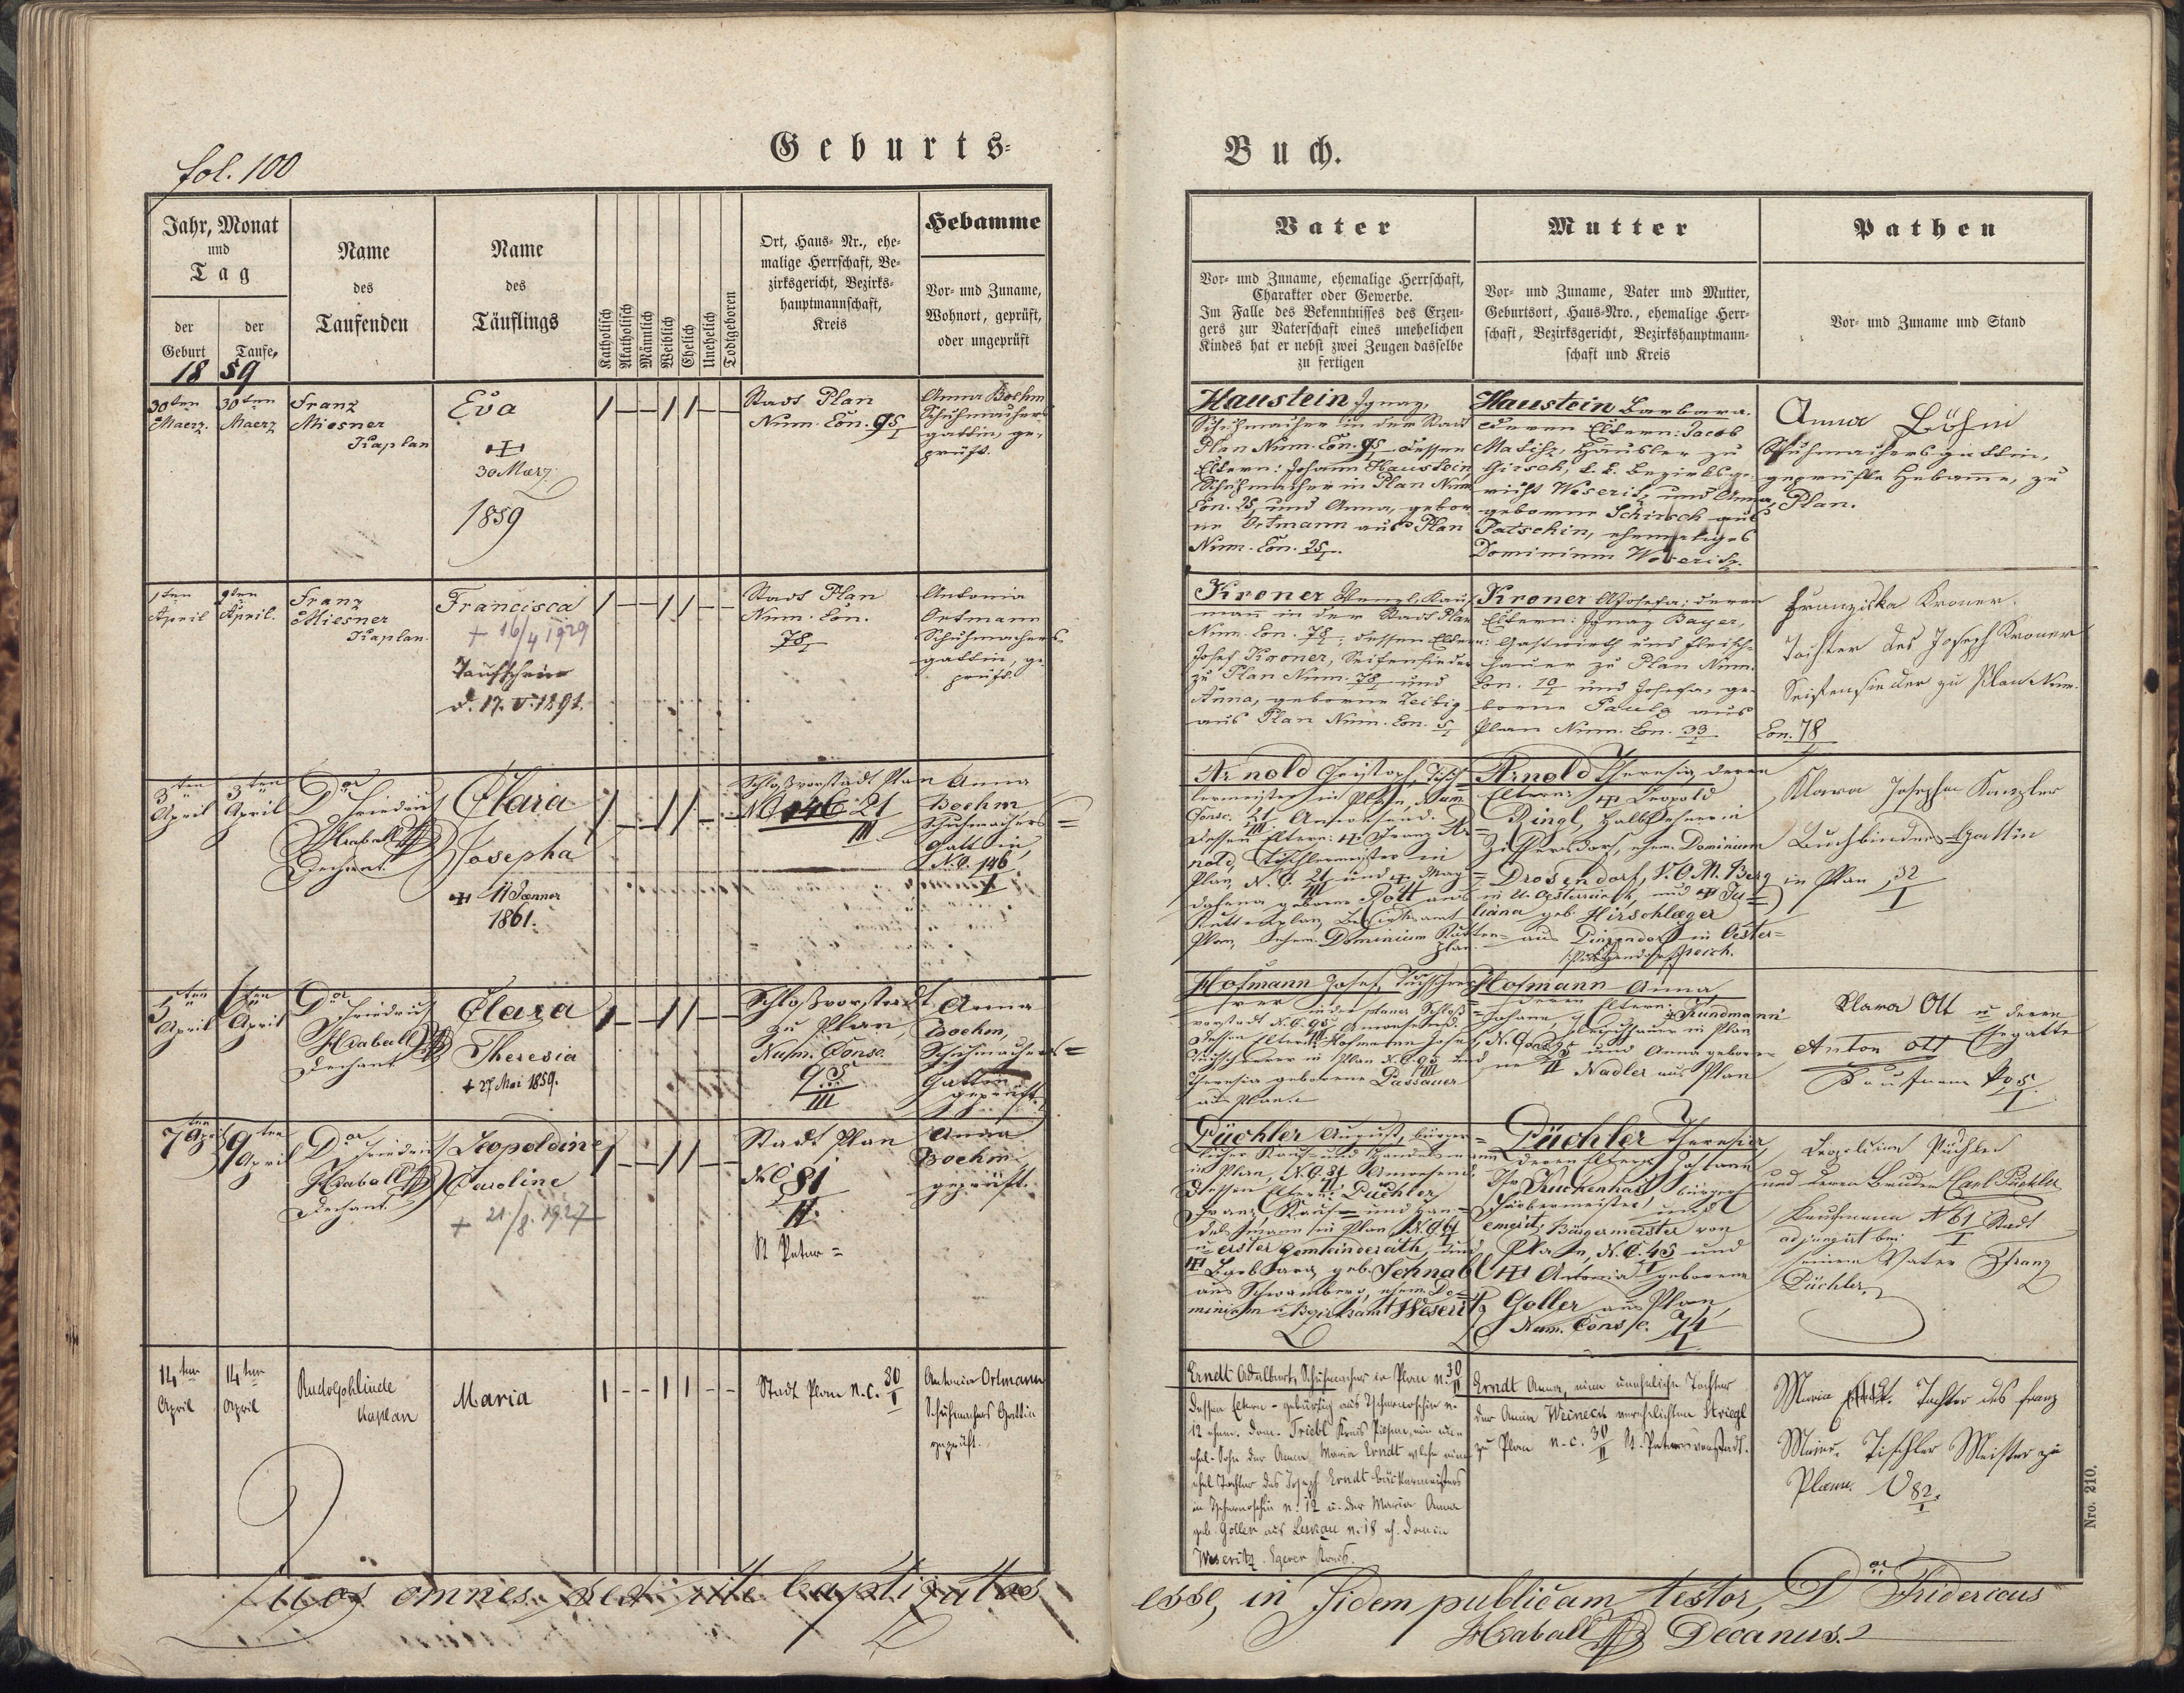 fol. 100
Geburts-
Buch.
Jahr, Monat
und
Tag
der
Geburt
der
Taufe
18 59
Name
des
Taufenden
Name
des
Täuflings
Katholisch
Akatholisch
Männlich
Weiblich
Ehelich
Unehelich
Todtgeboren
Ort, Haus- Nr., ehe-
malige Herrschaft, Be-
zirksgericht, Bezirks-
hauptmannschaft,
Kreis
Hebamme
Vor- und Zuname,
Wohnort, geprüft,
oder ungeprüft
Vater
Vor- und Zuname, ehemalige Herrschaft,
Charakter oder Gewerbe.
Im Falle des Bekenntnisses des Erzen-
gers zur Vaterschaft eines unehelichen
Kindes hat er nebst zwei Zeugen dasselbe
zu fertigen
Mutter
Vor- und Zuname, Vater und Mutter,
Geburtsort, Haus-Nro., ehemalige Herr-
schaft, Bezirksgericht, Bezirkshauptmann-
schaft und Kreis
Pathen
Vor- und Zuname und Stand
30ten
Maerz.
30ten
Maerz
Franz
Miesner
Kaplan
Eva
30 Maerz
1859
Stadt Plan
Num. Con. 95/I
Anna Boehm
Schuhmachers
gattin, ge-
prüft.
Haustein Ignaz,
Schuhmacher in der Stadt
Plan Num. Con. 95/I dessen
Eltern: Johann Haustein,
Schuhmacher in Plan Num.
Con. 25 und Anna, gebor
ne Ortmann aus Plan
Num. Con. 25/I.
Haustein Barbara.
deren Eltern: Jacob
Matihz, Häusler zu
Girsch, k. k. Bezirksge-
richt Weseritz und Anna,
geborne Schirsch aus
Patschin, ehemaliges
Dominium Weseritz.
Anna Böhm
Schuhmachersgattin,
geprüfte Hebamme, zu
Plan.
1ten
April
9ten
April.
Franz
Miesner
Kaplan.
Francisca
+ 16/4 1929
Taufschein
d. 17. V. 1891.
Stadt Plan
Num. Con.
78/I
Antonia
Ortmann
Schuhmachers
gattin, ge-
prüft.
Kroner Wenzl, Kauf
mann in der Stadt Plan
Num. Con. 78/I; dessen Eltern:
Josef Kroner, Seifensieder
zu Plan Num. 78/I und
Anna, geborne Zeibig
aus Plan Num. Con. 5/I
Kroner Josefa; deren
Eltern: Ignaz Bayer,
Gastwirth und Fleisch-
hauer zu Plan Num.
Con. 10/I und Josefa, ge-
borne Pauls aus
Plan Num. Con. 33/I.
Franziska Kroner.
Tochter des Joseph Kroner
Seifensieder zu Plan Num.
Con. 78
3ten
April
3ten
April
Dor
Friedrich
Hraball
Dechant
Clara
Josepha
11 Jänner
1861.
Schloßvorstadt Plan
21
III
Anna
Boehm
Schuhmachers
Gattin,
N.C. 146
Arnold Christoph, Tisch-
lermeister in Plan, Num.
Consc. 21/III. Anwesend.
Dessen Eltern: Franz Ar-
nold, Tischlermeister in
Plan, N. C. 21/III und Mag-
dalena geborne Pott aus
Kuttenplan, Bezirksamt
Plan, ehem. Dominium Kutten-
plan.
Arnold Theresia, deren
Eltern: Leopold
Ringl, Halblehner in
Dominium
Drosendorf, V.O.M. Berg
in U. Oesterreich, und Ju-
liana geb. Hirschlæger
aus Pingendorf in Oester-
reich.
Klara Josepha Kanzler
Buchbinders-Gattin
in Plan 32
I
5ten
April
6ten
April
Dor
Friedrich
Hraball
Dechant
Clara
Theresia
+ 27 Mai 1859.
Schloßvorstadt
zu Plan,
Num. Consc.
95
III
Anna
Boehm,
Schuhmachers-
Gattin
geprüft.
Hofmann Josef, Tuchsche-
rer in der Planer Schloß-
vorstadt N.C. 95/III Anwesend.
Dessen Eltern: Hofmann Josef,
Tuchscherer in Plan N.C. 95 und
Theresia geborene Passauer
aus Plan.
Hofmann Anna,
deren Eltern:
Johann Kundmann
Fleischhauer in Plan
N. Cons. und Anna gebore-
ne Nadler aus Plan
Klara Ott u deren
Ehegatte
Anton Ott
Kaufmann
7ten
April
9ten
April
Dor
Friedrich
Hraball
Dechant
Leopoldine
Caroline
+ 21/8. 1927
Stadt Plan
N.C. 81
II.
St Peter =
Anna
Boehm
geprüft.
Püchler August, bürger-
licher Kauf- und Handelsmann
in Plan, N. C. 81/II Anwesend.
Dessen Eltern: Püchler
Franz, Kauf- und Han-
delsmann in Plan N. 61
u erster Gemeinderath, und
Barbara geb. Schnabl
aus Schwamberg, ehem. Do-
minium u Bezirksamt Weseritz
Püchler Theresia,
deren Eltern Johann
Kuchenhart, bürger.
Färbermeister, und
emerit. Bürgermeister von
Plan, N. C. 45 und
Antonia geborene
Goller aus Plan,
Num. Consc. 74
I
Leopoldine Püchler
und deren Bruder Carl Püchler
Kaufmann N 61 Stadt
adjungirt bei
seinem Vater Franz
Püchler.
14ten
April
14ten
April
Rudolph Linde
Kaplan
Maria
Stadt Plan N.C. 30
Antonia Ortmann
Schuhmachers Gattin
geprüft.
Erndt Adalbert, Schuhmacher in Plan N. 30/II
dessen Eltern - gebürtig aus Tschernoschin N.
12 ehem. Dom. Triebl Kreis Pilsen, ein un-
ehel. Sohn der Anna Maria Erndt welche eine
ehel Tochter des Joseph Erndt bäckermeisters
in Tschernoschin N. 12 u. der Maria Anna
geb. Goller aus Leskau N. 18 eh. Domin
Weseritz. Egerer Kreis.
Erndt Anna, eine uneheliche Tochter
der Anna Weineck verehelichten Striegl
zu Plan N.C. 30/II St. Petersvorstadt.
Maria Tochter des Franz
Maier. Tischler Meister zu
Plan. N 82.
I
Nro. 210.
Quos omnes rite baptizatos
esse, in fidem publicam testor, Dor Fridericus
Hraball Decanus.